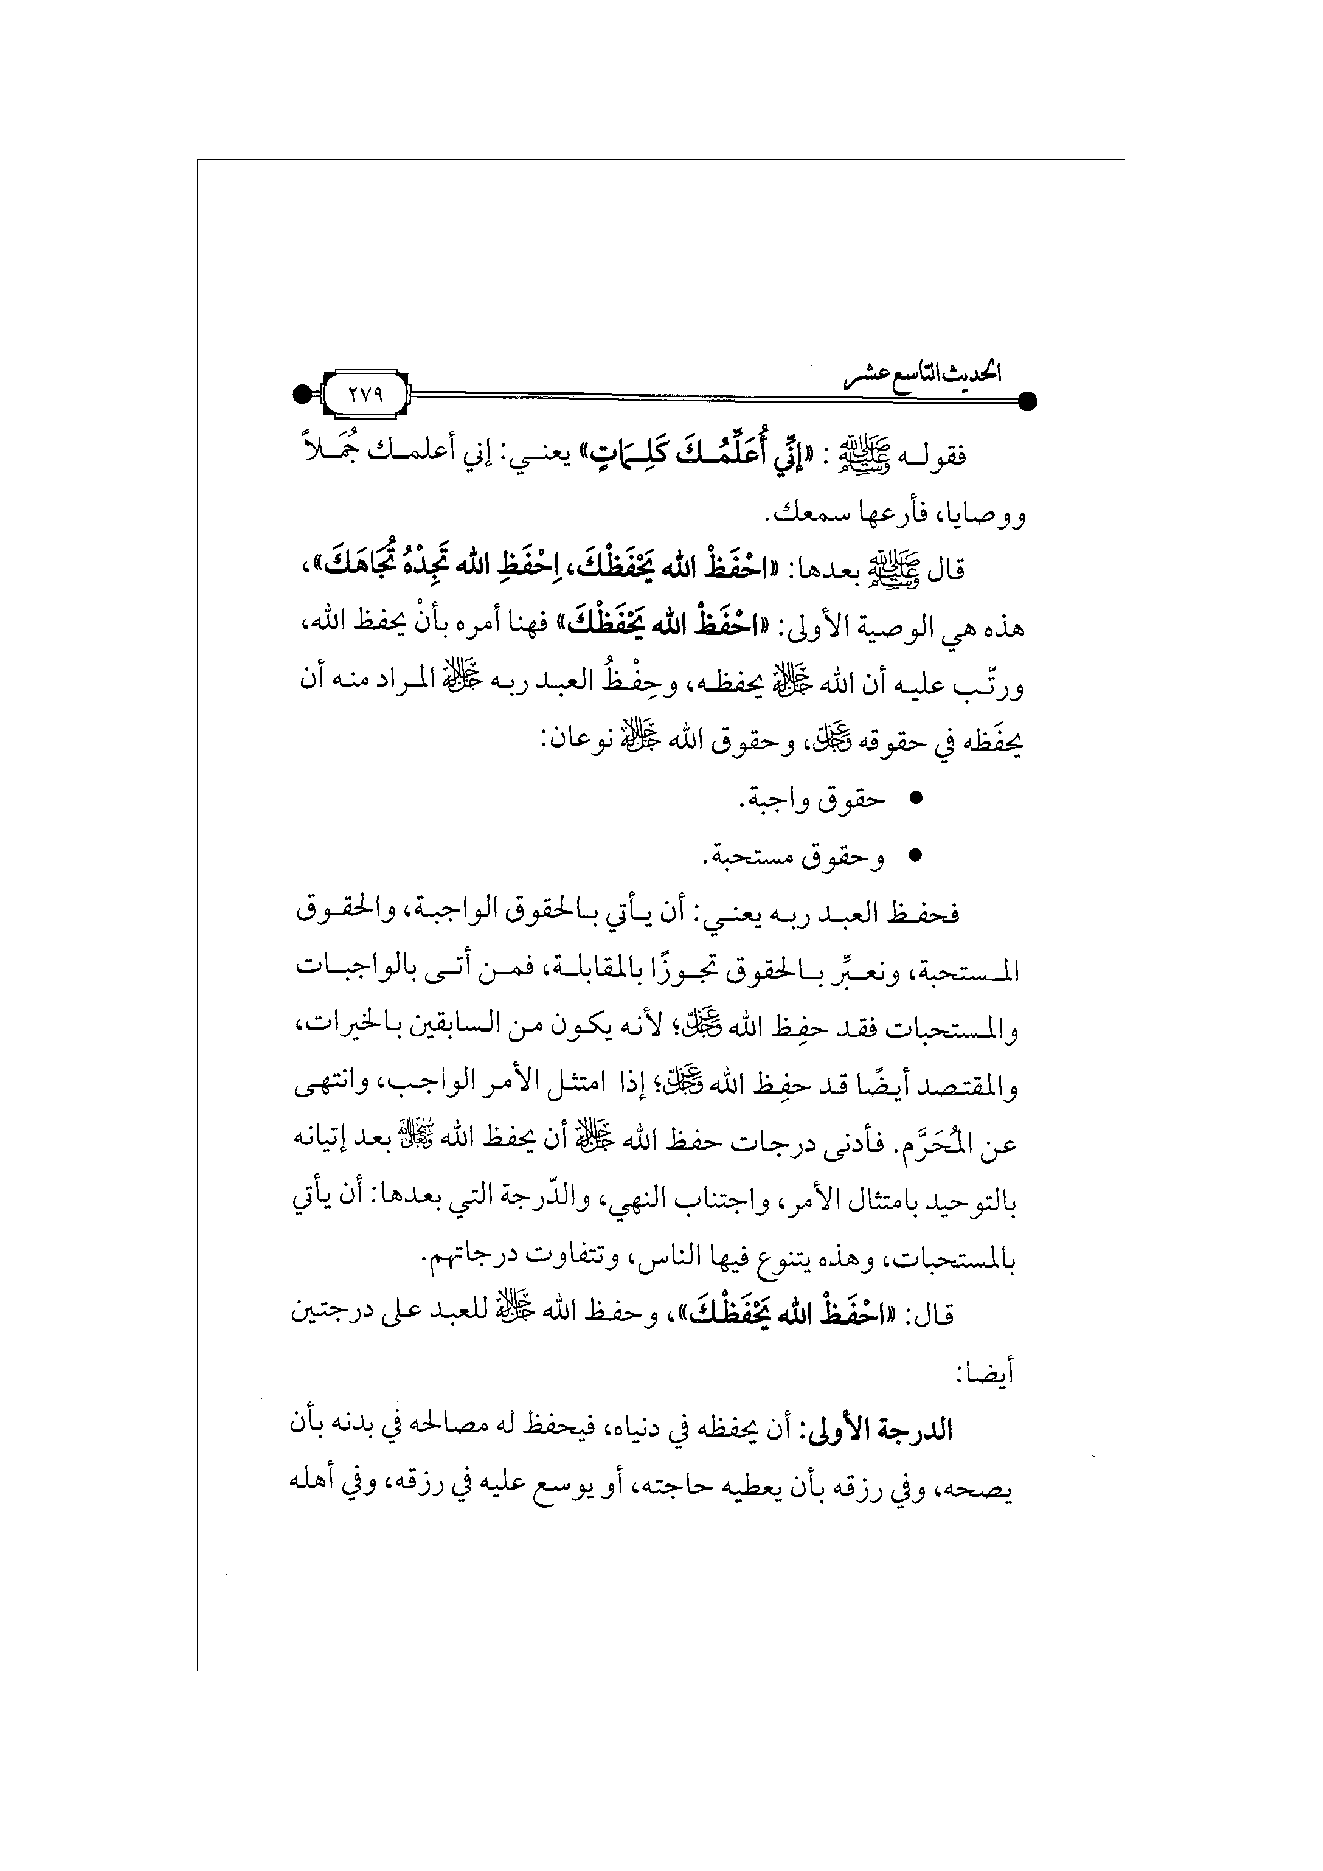 الحديث التاسع عشر
٢٧٩
فقوله ﷺ : «إِنِّي أُعَلِّمُكَ كَلِمَاتٍ» يعني: إني أعلمك جُمَلاً
ووصايا، فأرعها سمعك.
قال ﷺ بعدها: «احْفَظْ الله يَحْفَظْكَ، اِحْفَظِ الله تَجِدْهُ تُجَاهَكَ»،
هذه هي الوصية الأولى: «احْفَظْ الله يَحْفَظْكَ» فهنا أمره بأنْ يحفظ الله،
ورتّب عليه أن الله ﷻ يحفظه، وحِفْظُ العبد ربه ﷻ المراد منه أن
يحفَظه في حقوقه عَزَّ وَجَلَّ، وحقوق الله ﷻ نوعان:
● حقوق واجبة.
● وحقوق مستحبة.
فحفظ العبد ربه يعني: أن يأتي بالحقوق الواجبة، والحقوق
المستحبة، ونعبِّر بالحقوق تجوزًا بالمقابلة، فمن أتى بالواجبات
والمستحبات فقد حفِظ الله عَزَّ وَجَلَّ؛ لأنه يكون من السابقين بالخيرات،
والمقتصد أيضًا قد حفِظ الله عَزَّ وَجَلَّ؛ إذا امتثل الأمر الواجب، وانتهى
عن المُحَرَّم. فأدنى درجات حفظ الله ﷻ أن يحفظ الله بعد إتيانه
بالتوحيد بامتثال الأمر، واجتناب النهي، والدّرجة التي بعدها: أن يأتي
بالمستحبات، وهذه يتنوع فيها الناس، وتتفاوت درجاتهم.
قال: «احْفَظْ الله يَحْفَظْكَ»، وحفظ الله ﷻ للعبد على درجتين
أيضا:
الدرجة الأولى: أن يحفظه في دنياه، فيحفظ له مصالحه في بدنه بأن
يصحه، وفي رزقه بأن يعطيه حاجته، أو يوسع عليه في رزقه، وفي أهله